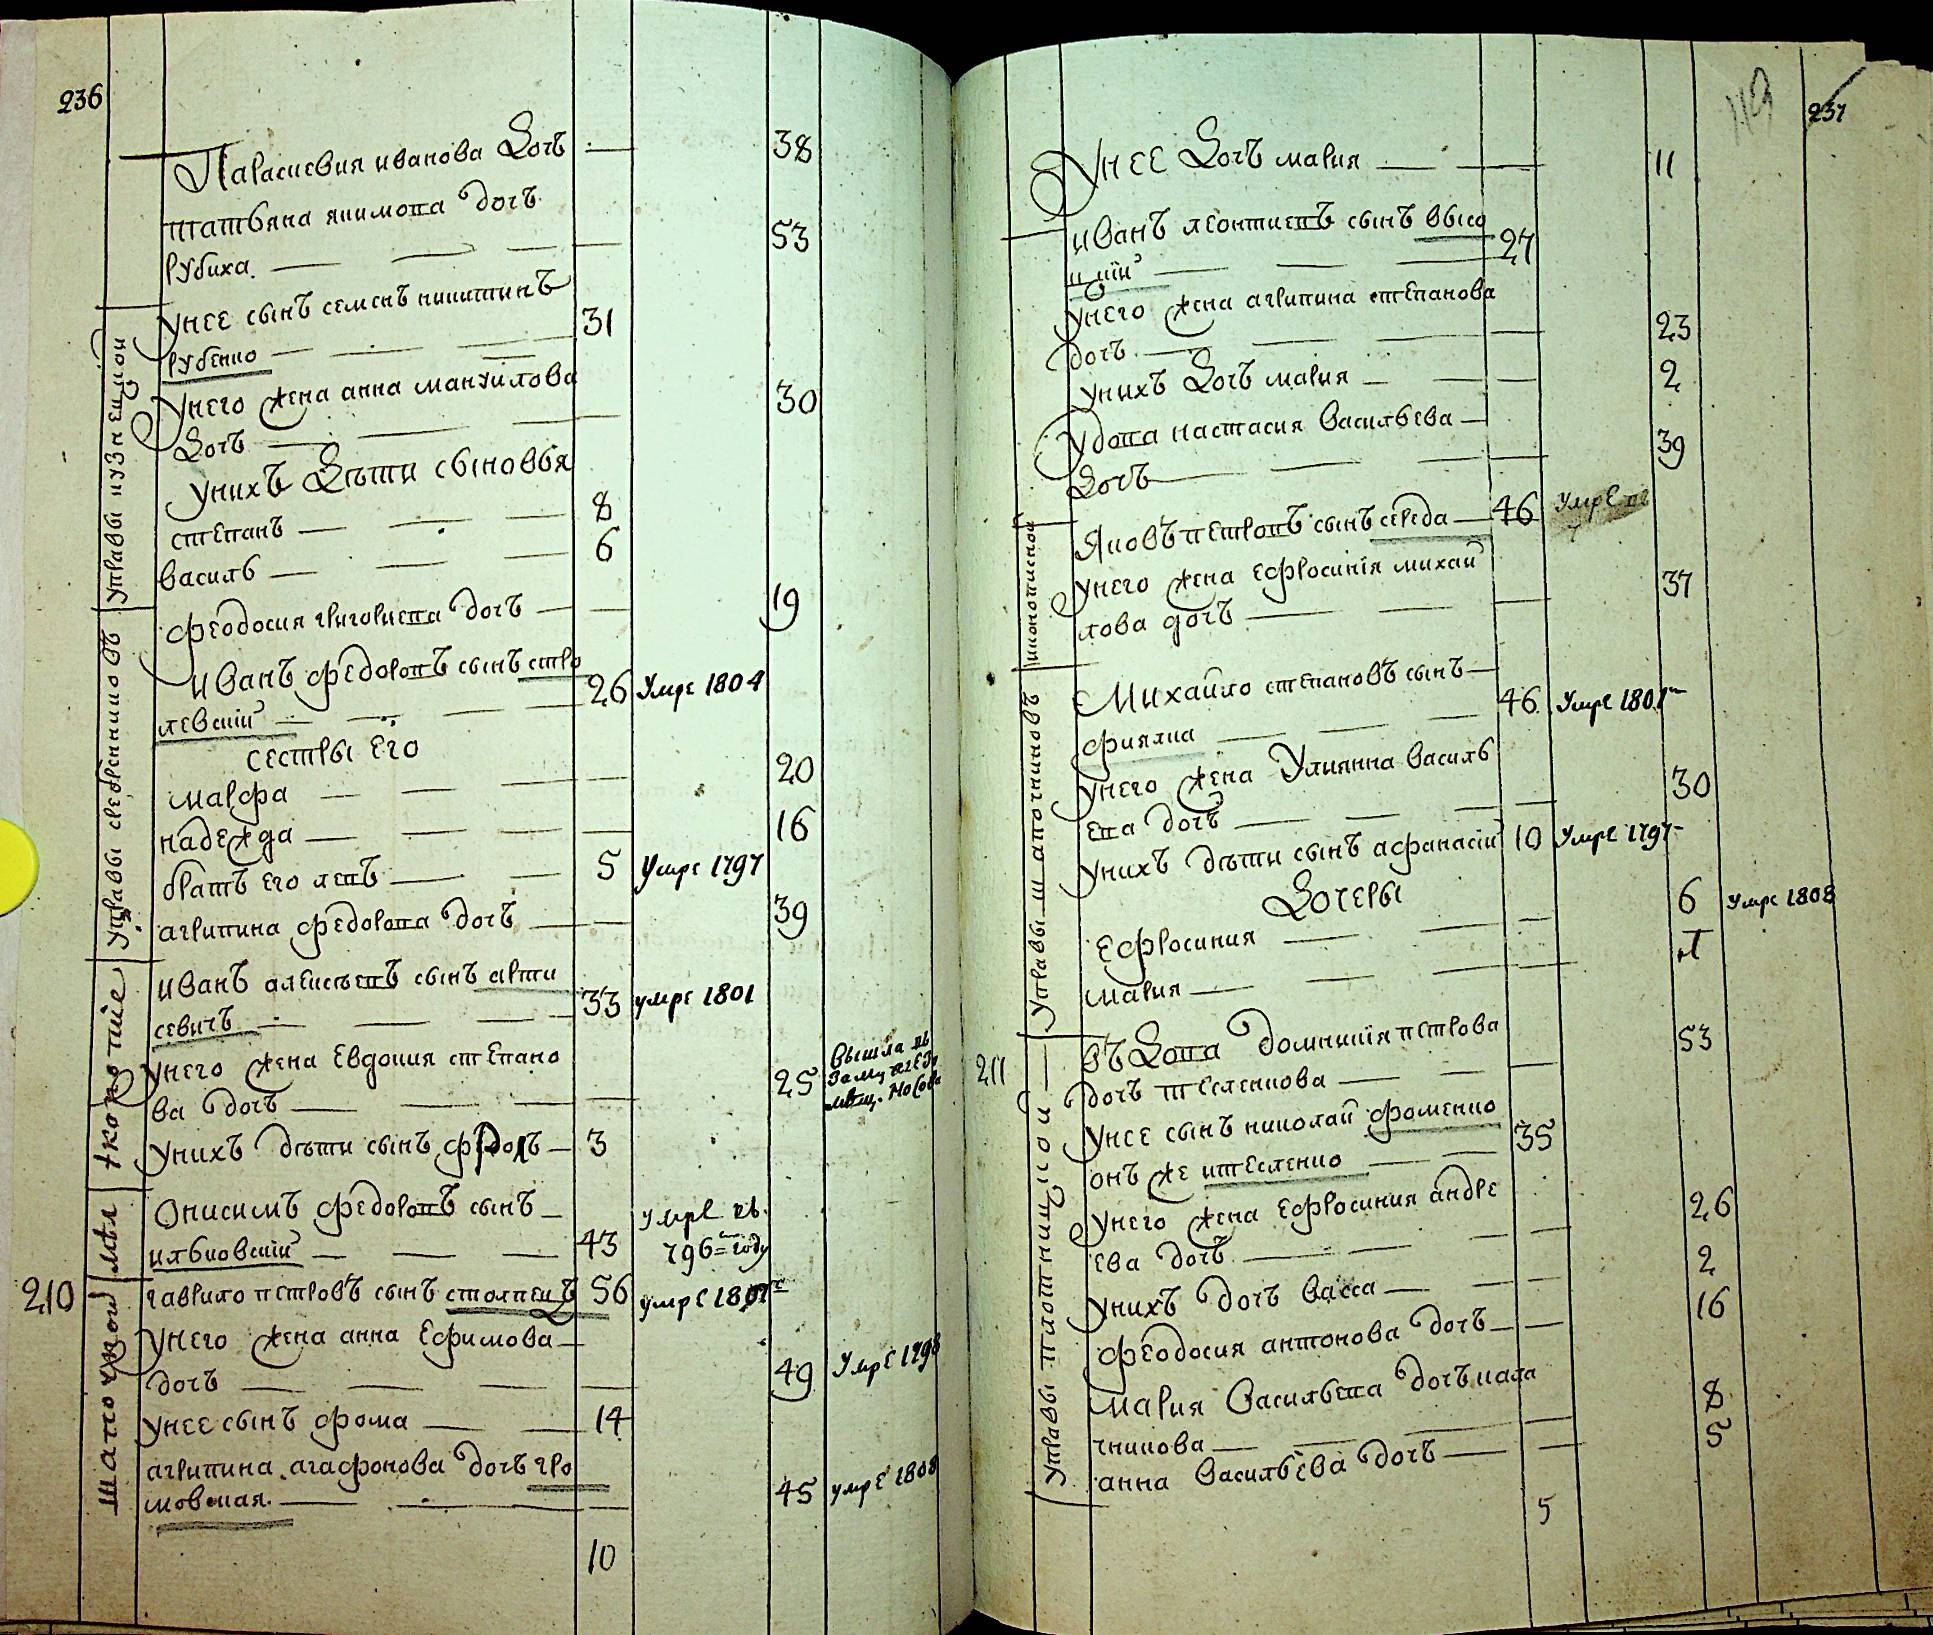 236
Парасковия иванова дочь 38
татьяна якимова дочь
рубиха 53
унее сынъ семенъ никитинъ
рубенко 31
унего жена анна мануилова
дочь 30
унихъ дѣти сыновья
степанъ 8
василь 6
феодосия григориева дочь 19
иванъ федоровъ сынъ стро
левскій 26 умре 1804
сестры его
марфа 20
надежда 16
братъ его левъ 5 умре 1797
агрипина федорова дочь 39
иванъ алексѣевъ сынъ арти
севичъ 33 умре 1801
унего жена евдокия степано
ва дочь 25 вышла въ
унихъ дѣти сынъ 3
Онисимъ федоровъ сынъ
ильковскій 43 умре въ
796 году
210 гаврило петровъ сынъ столпецъ 56 умре
унего жена анна ефимова
дочь 49 умре 1798
унее сынъ фома 14
агрипина агафонова дочь гро
мовская 45 умре 1808
10
управы кузнецкой
управы сребренниковъ
иконописной
237
119
унее дочь мария 11
иванъ леонтиевъ сынъ высо
цкій 27
унего жена агрипина степанова
дочь 23
унихъ дочь мария 2
удова настасия васильева
дочь 39
яковъ петровъ сынъ середа 46 умре
унего жена ефросинія михаи
лова дочь 37
Михайло степановъ сынъ
фиялка 46 умре 1801
унего жена улиянна василь
ева дочь 30
унихъ дѣти сынъ афанасій 10 умре 1797
дочеры
ефросиния 6 умре 1808
мария
211 вѣдова домникія петрова
дочь тесленкова 53
унее сынъ николай фоменко
онъ же итесленко 35
унего жена ефросиния андре
ева дочь 26
унихъ дочь васса 2
феодосия антонова дочь 16
мария васильева дочь кала
чникова 8
анна васильева дочь 5
5
управы шапочниковъ
управы плотницкой